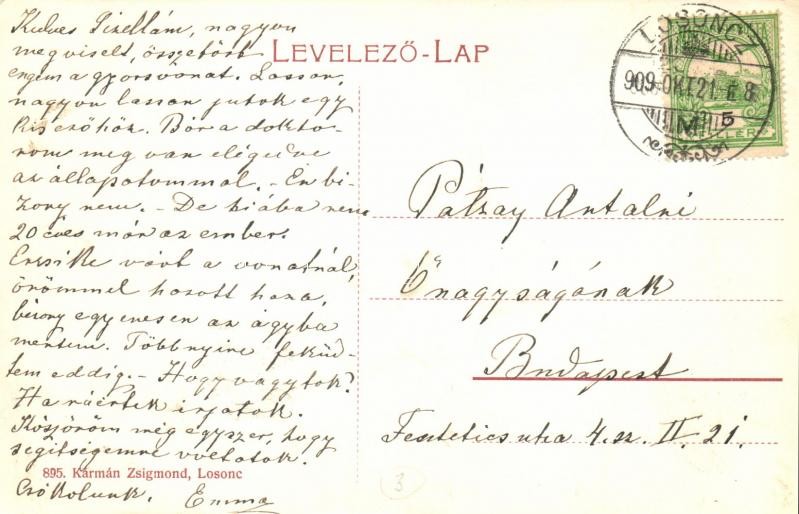 Kedves Gizellám, nagyon
megviselt, összetört
engem a gyorsvonat. Lassan,
nagyon lassan jutok egy
kis erőhöz. Bár a dokto-
rom meg van elégedve
az állapotommal. - Én bi-
zony nem. - De hiába nem
20 éves már az ember.
Erzsike várt a vonatnál,
örömmel hozott haza,
bizony egyenesen az ágyba
mentem. Többnyire feküd-
tem eddig. - Hogy vagytok?
Ha ráértek írjatok.
Köszönöm még egyszer, hogy
segítségemre voltatok.
895. Kármán Zsigmond, Losonc
Csókolunk. Emma
LEVELEZŐ-LAP
LOSONCZ
909 OKT 21
M 5
FILLÉR
Pátzay Antalné
Őnagyságának
Budapest
Festetics utca 4. sz. II. 21.
3